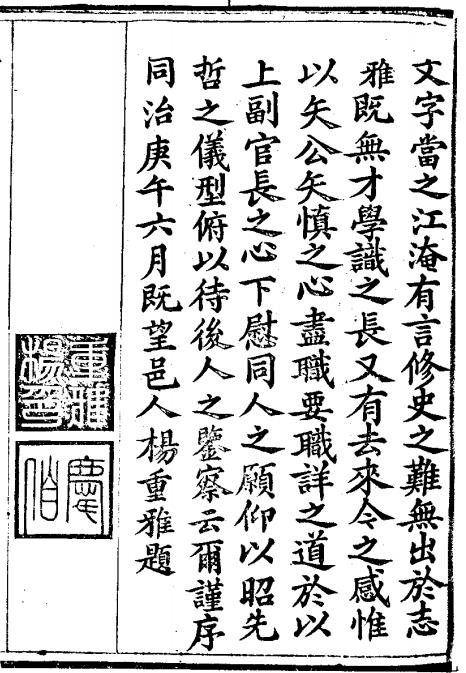 文字當之江淹有言修史之難無出於志
雅既無才學識之長又有去來今之感惟
以矢公矢慎之心盡職要職詳之道於以
上副官長之心下慰同人之願仰以昭先
哲之儀型俯以待後人之鑒察云爾謹序
同治庚午六月既望邑人楊重雅題
重雅楊印
慶伯